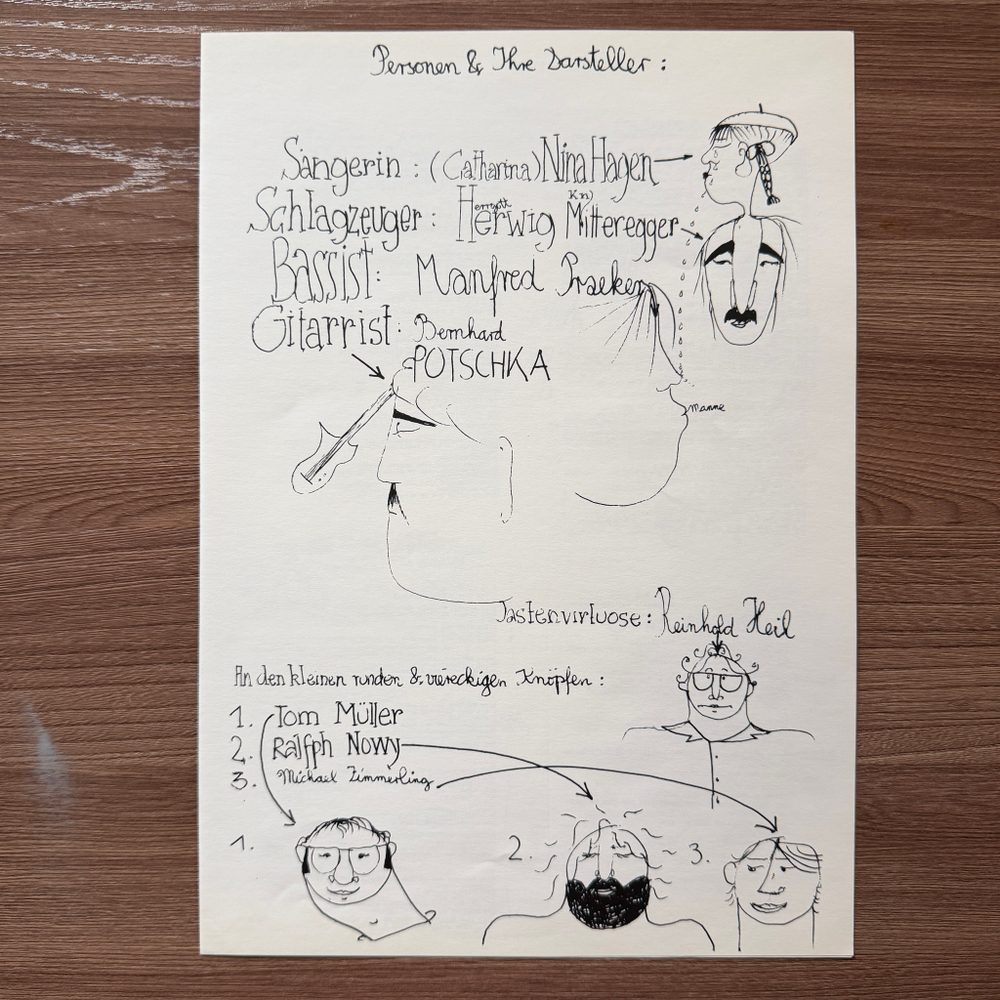 Personen & Ihre Darsteller :
Sängerin : (Catharina) Nina Hagen
Schlagzeuger : Herwig Mitteregger
Kn)
Bassist: Manfred Praeker
Gitarrist : Bernhard
POTSCHKA
manne
Tastenvirtuose : Reinhold Heil
An den kleinen runden & viereckigen Knöpfen :
1. Tom Müller
2. Ralfph Nowy
3. Michael Zimmerling
1.
2.
3.